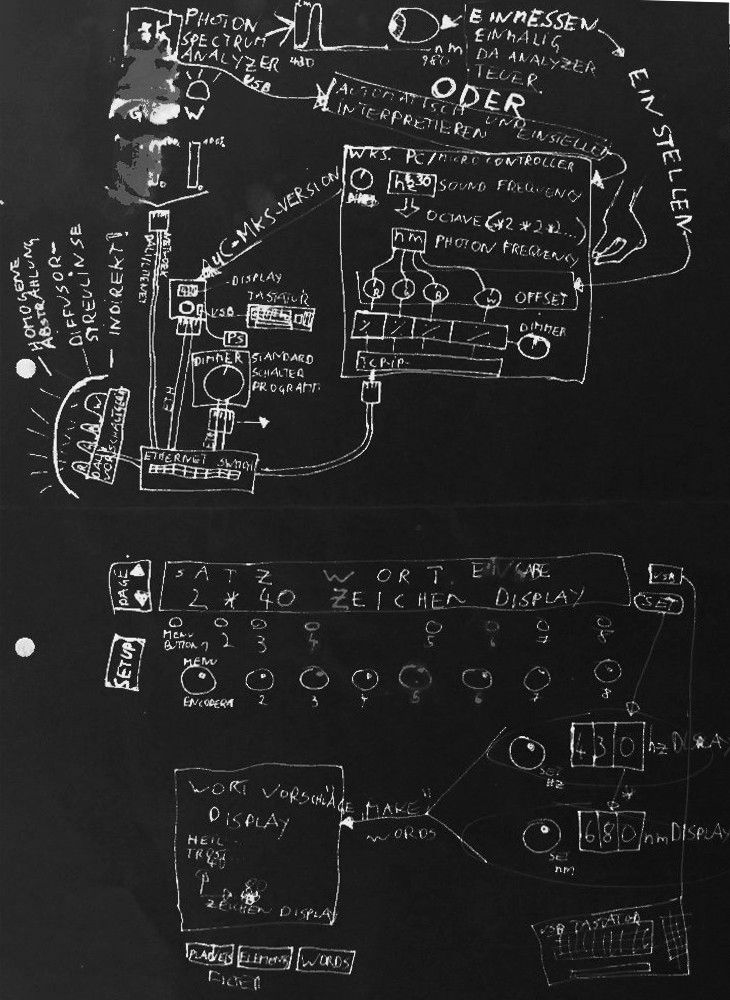 PHOTON
SPECTRUM
ANALYZER
USB
430
nm
980
EINMESSEN
EINMALIG
DA ANALYZER
TEUER
ODER
AUTOMATISCH UND EINSTELLEN
INTERPRETIEREN
EINSTELLEN
W
WKS. PC/MICROCONTROLLER
SOUND FREQUENCY
OCTAVE (*2 *2 *2...)
nm
PHOTON FREQUENCY
W
OFFSET
DIMMER
TCP-IP
µC-MKS-VERSION
DISPLAY
TASTATUR
USB
PS
DIMMER
STANDARD
SCHALTER
PROGRAMM
ETH
ETH
ETHERNET SWITCH
HOMOGENE
ABSTRAHLUNG
DIFFUSOR-
STREULINSE
INDIREKT!
DALI
VORSCHALTGERÄT
PAGE
SATZ WORT EINGABE
2 * 40 ZEICHEN DISPLAY
USB
SET
SETUP
MENU
BUTTON 1
2
3
4
5
6
7
8
MENU
ENCODER 1
2
3
4
5
6
7
8
SET
HZ
430
hz DISPLAY
SET
nm
680
nm DISPLAY
"MAKE"
WORDS
WORT VORSCHLÄGE
DISPLAY
HEIL
ZEICHEN DISPLAY
PLANETS
ELEMENTS
WORDS
FILTER
USB TASTATUR